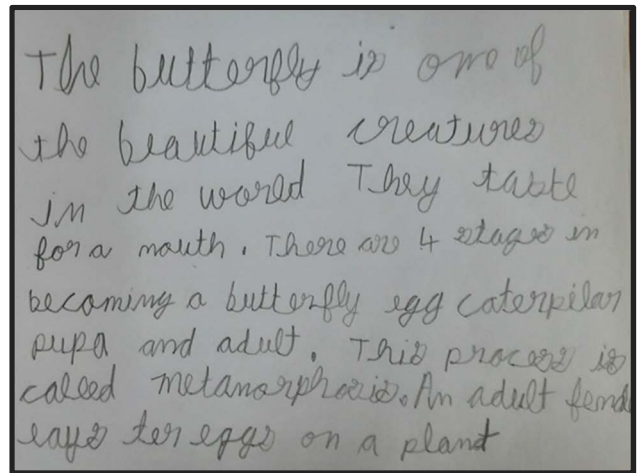 The butterfly is one of
the beautiful creatures
in the world They taste
for a mouth. There are 4 stages in
becoming a butterfly egg caterpilar
pupa and adult. This process is
called metamorphosis. An adult
lays eggs on a plant